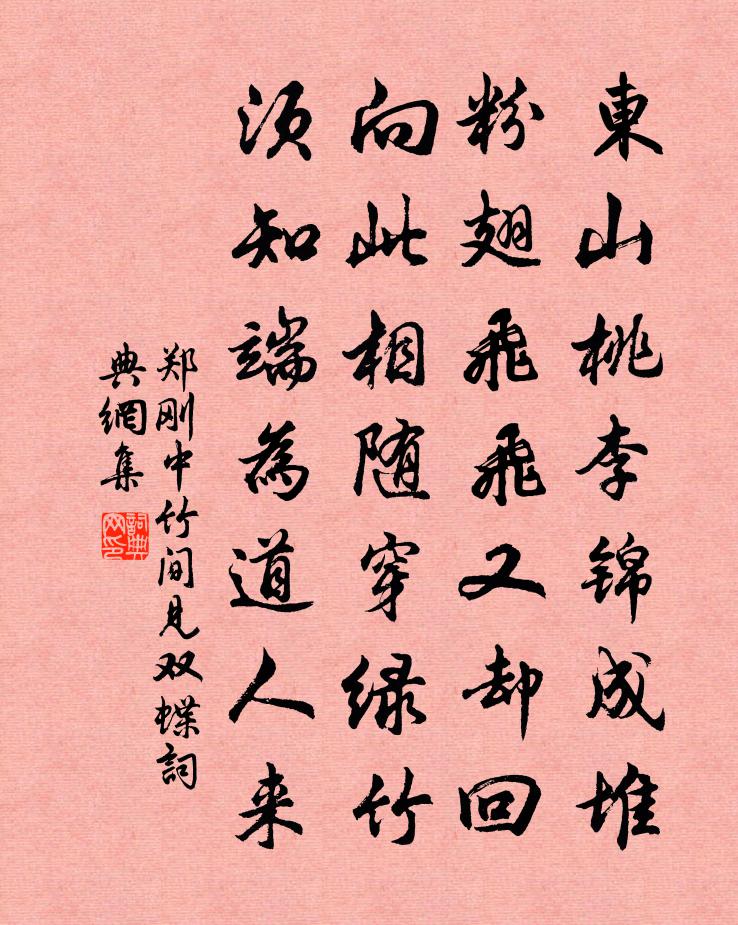 東山桃李锦成堆
粉翅飛飛又却回
向此相随穿绿竹
须知端為道人来
郑刚中竹间见双蝶詞
典網集
詞典网印